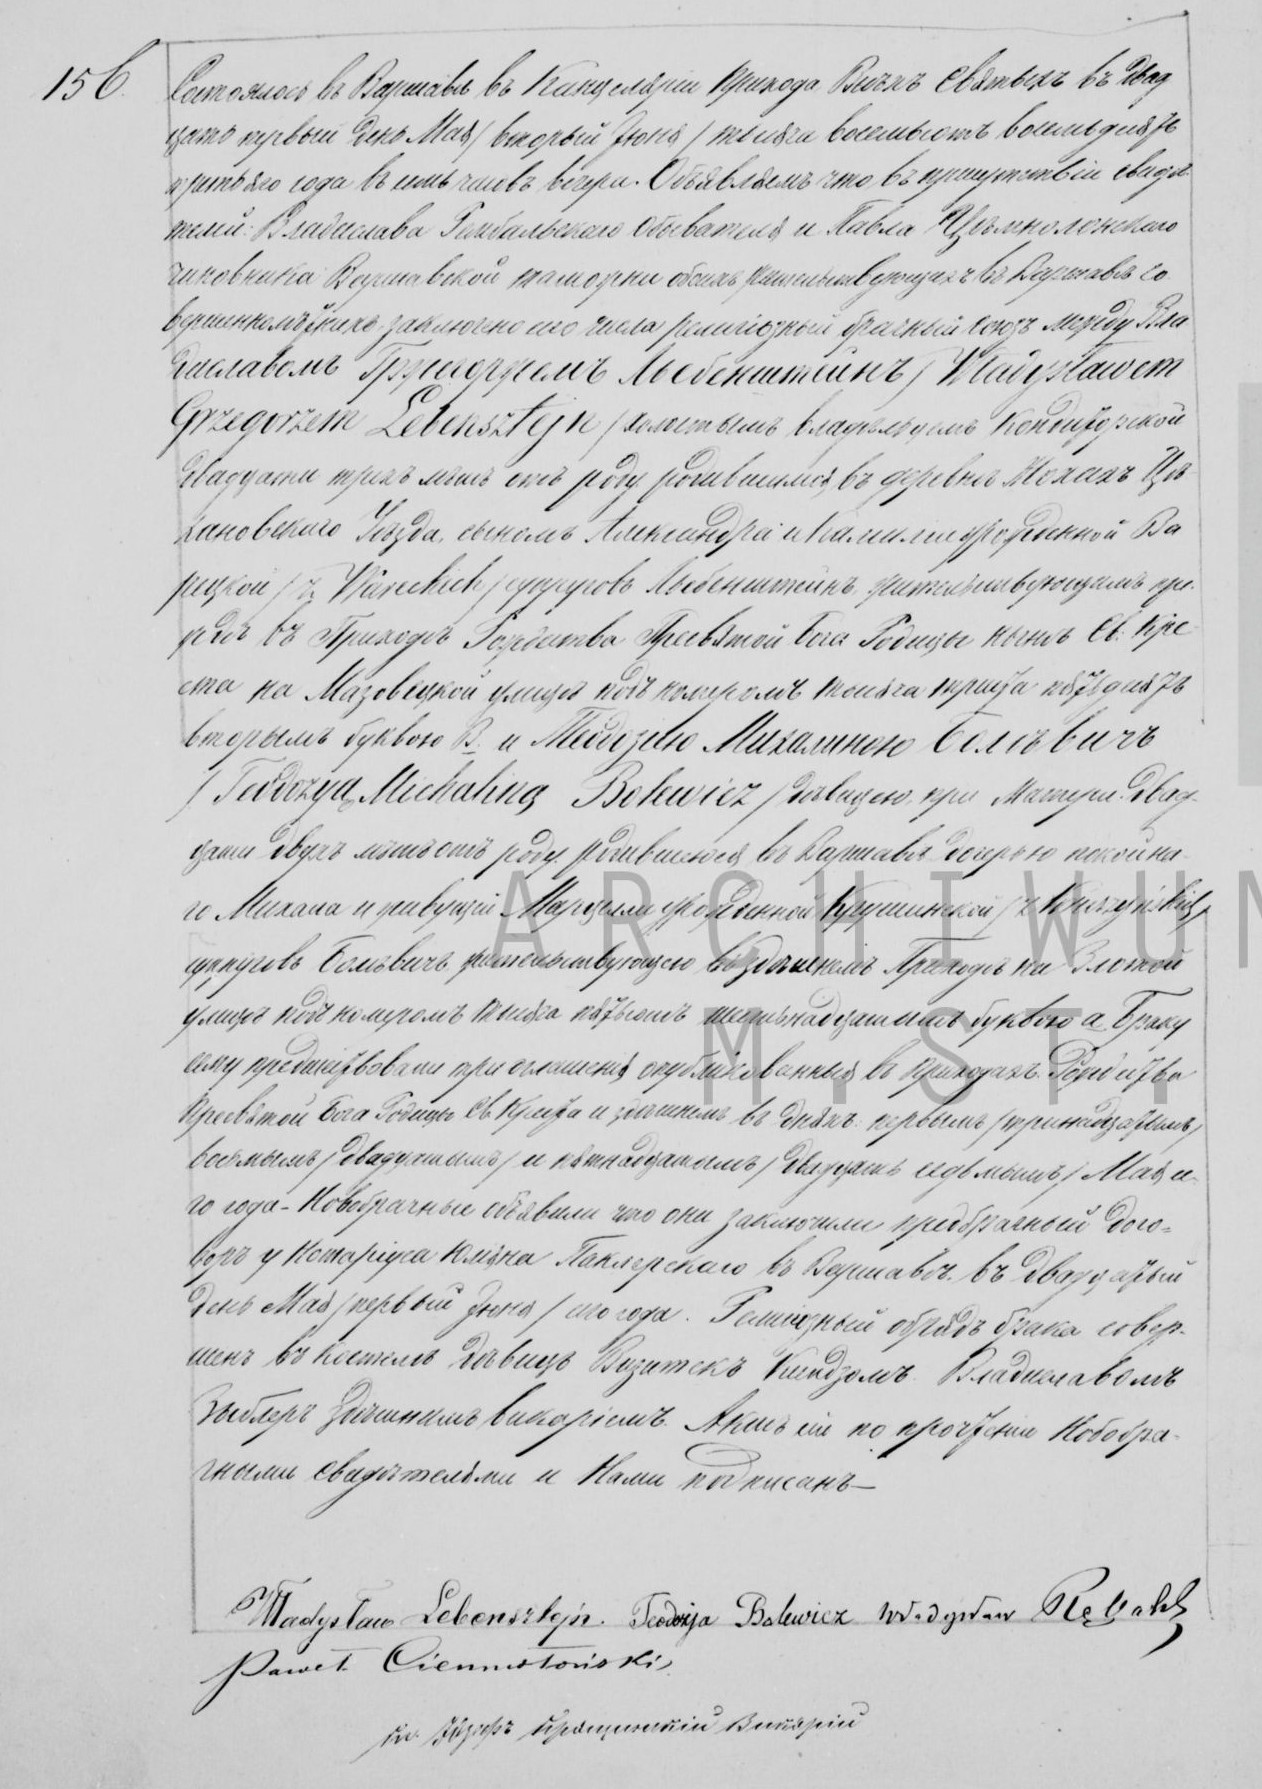 156.
Состоялось въ Варшавѣ въ Канцеляріи Прихода Всѣхъ Святыхъ въ двад
цать первый день Мая / вторый Іюня / тысяча восемьсотъ восемьдесятъ
третьяго года въ семь часовъ вечера. Объявляемъ что въ присутствіи свидѣ
телей: Владислава обывателя и Павла
чиновника Варшавской таможни обоихъ жительствующихъ въ Варшавѣ со
вершеннолѣтнихъ, заключено сего числа религіозный брачный союзъ между Вла
диславомъ Гржегоржемъ Лебенштейнъ / Władysławem
Grzegorzem Lebensztejn / холостымъ владѣльцемъ Кондиторской
двадцати трехъ лѣтъ отъ роду родившимся въ деревнѣ Цѣ
хановскаго Уѣзда, сыномъ Александра и Камиліи урожденной Ва
рецкой / z Wareckich / супруговъ Лебенштейнъ, жительствующимъ пре
жде въ Приходѣ Рождества Пресвятой Бога Родицы нынѣ Св. Кре
ста на Мазовецкой улицѣ подъ номеромъ тысяча триста пятьдесятъ
вторымъ буквою В. и Теодозіею Михалиною Болевичъ
/ Teodozyą Michaliną Bolewicz / дѣвицею, при Матери, двад-
цати двухъ лѣтъ отъ роду родившеюся въ Варшавѣ дочерью покойна-
го Михала и живущей урожденной
супруговъ Болевичъ, жительствующею въ здѣшнемъ Приходѣ на Злотой
улицѣ подъ номеромъ тысяча пятьсотъ шестьнадцатымъ буквою а Браку
сему предшествовали при оглашенія опубликованныя въ приходахъ: Рождества
Пресвятой Бога Родицы Св. Креста и здѣшнемъ въ дняхъ: первымъ / тринадцатымъ /
восьмымъ / двадцатымъ / и пятнадцатымъ / двадцать седьмымъ / Мая се-
го года - Новобрачные объявили что они заключили предбрачный дого-
воръ у Нотаріуса Юліяна въ Варшавѣ въ двадцатый
день Мая / первый Іюня / сего года. Религіозный обрядъ брака совер-
шенъ въ костелѣ дѣвицъ Визитокъ Ксендзомъ Владиславомъ
здѣшнимъ викаріемъ. Актъ сей по прочтеніи Новобра-
чными свидѣтелями и Нами подписанъ —
Władysław Lebensztejn. Teodozija Bolewicz Władysław
Paweł Ciemnołoński
Викарій
ARCHIWUM
M. ST.